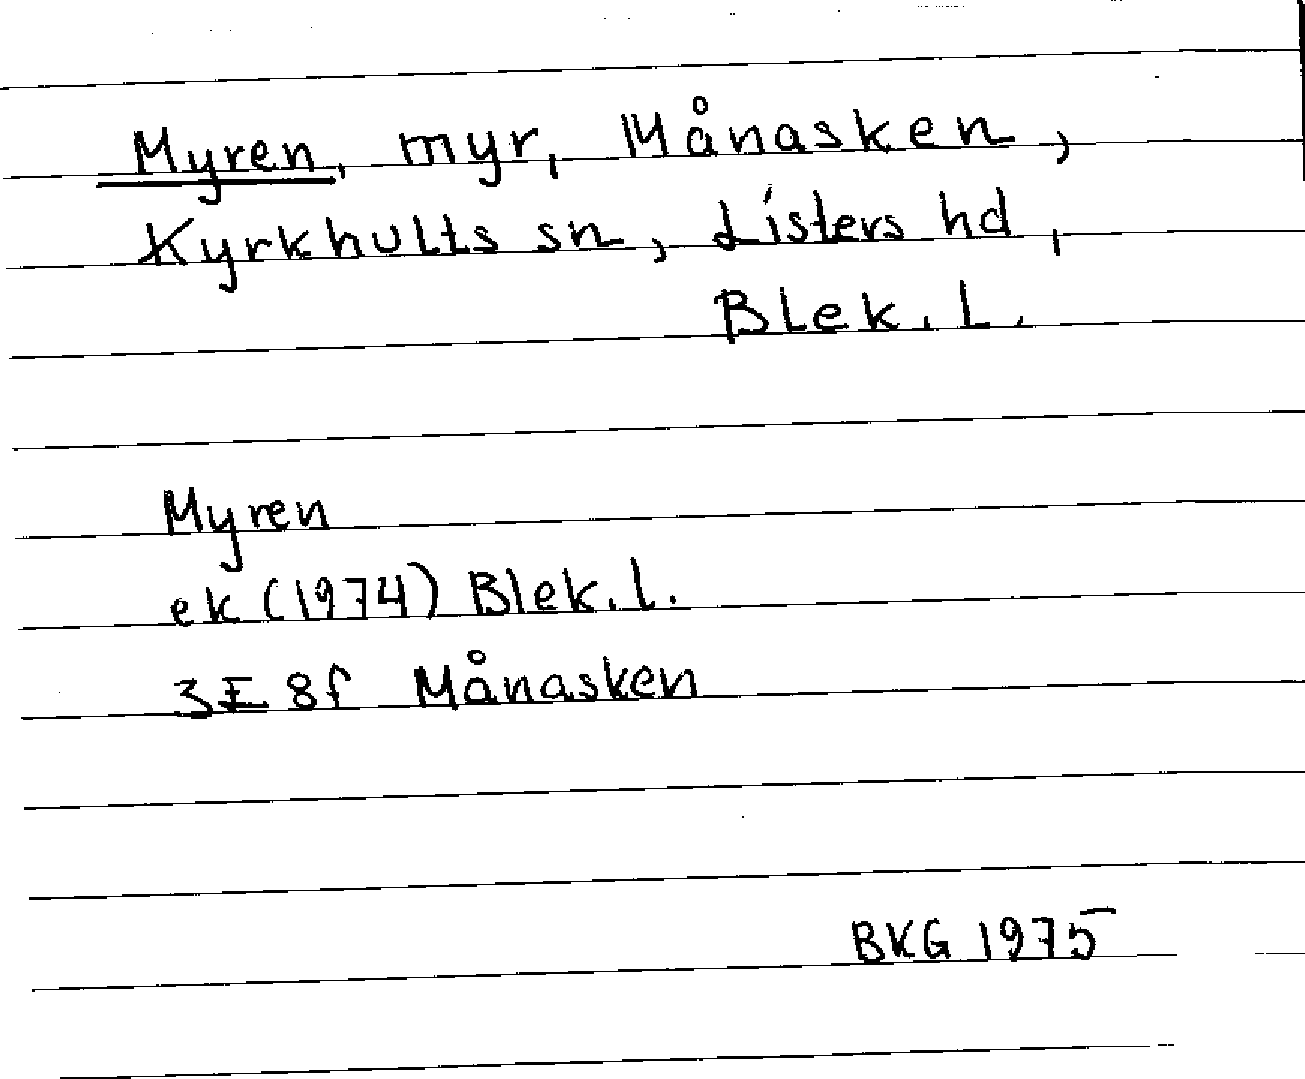 Myren, myr, Månasken,
Kyrkhults sn, Listers hd,
Blek. l.
Myren
ek (1974) Blek. l.
3E 8f Månasken
BKG 1975